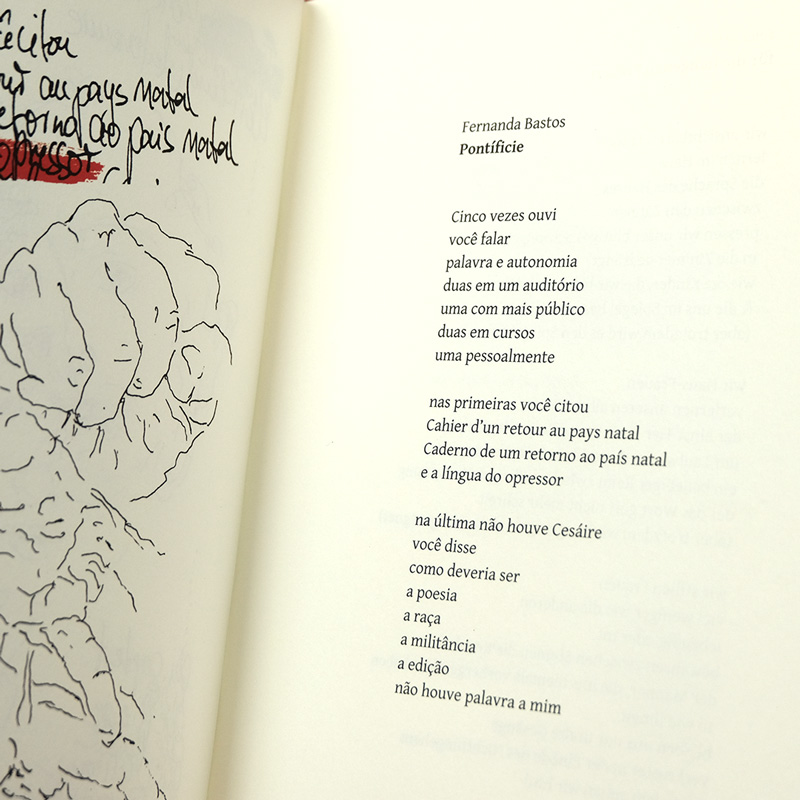 au pays natal
ao país natal
opressor
Fernanda Bastos
Pontíficie
Cinco vezes ouvi
você falar
palavra e autonomia
duas em um auditório
uma com mais público
duas em cursos
uma pessoalmente
nas primeiras você citou
Cahier d'un retour au pays natal
Caderno de um retorno ao país natal
e a língua do opressor
na última não houve Cesáire
você disse
como deveria ser
a poesia
a raça
a militância
a edição
não houve palavra a mim